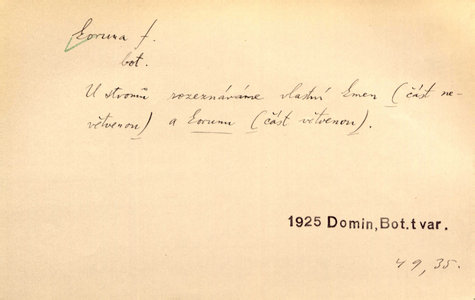 koruna f.
bot.
U stromů rozeznáváme vlastní kmen (část ne-
větvenou) a korunu (část větvenou).
1925 Domin, Bot. tvar.
49, 35.